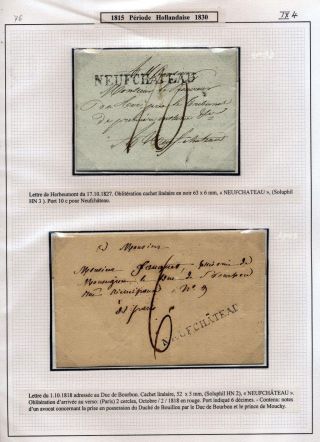 76
1815 Période Hollandaise 1830
IX 4
NEUFCHATEAU
Monsieur
10
Lettre de Herbeumont du 17.10.1827. Oblitération cachet linéaire en noir 63 x 6 mm, « NEUFCHATEAU », (Soluphil
HN 3 ). Port 10 c pour Neufchâteau.
à Monsieur
Monsieur
Monseigneur le Duc de Bourbon
N° 9
à Paris
6
NEUFCHÂTEAU
Lettre du 1.10.1818 adressée au Duc de Bourbon. Cachet linéaire, 52 x 5 mm, (Soluphil HN 2), « NEUFCHATEAU ».
Oblitération d'arrivée au verso: (Paris) 2 cercles, Octobre / 2 / 1818 en rouge. Port indiqué 6 décimes. - Contenu: notes
d'un avocat concernant la prise en possession du Duché de Bouillon par le Duc de Bourbon et le prince de Mouchy.